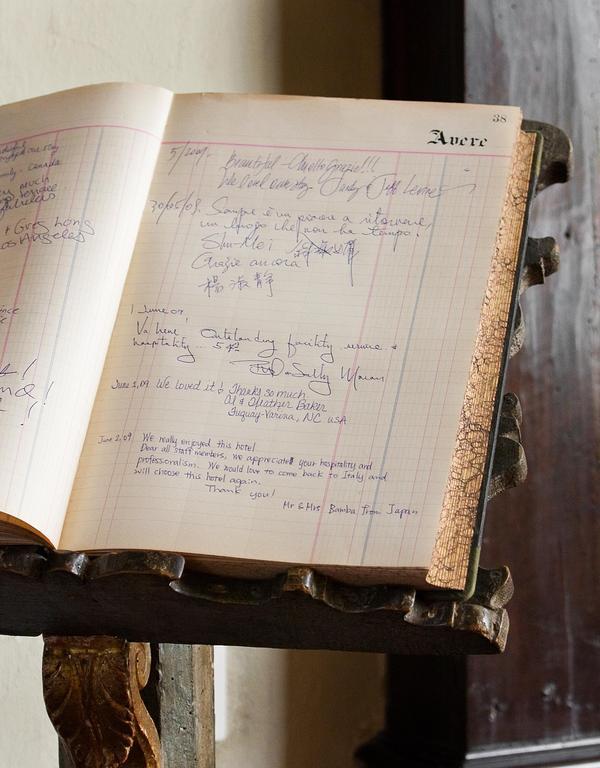 Canada
much
+ Greg Long
os Angeles
38
Avere
5/2009.
Beautiful - Molto Grazie!!!
We loved our stay - Judy & Jeff
30/05/09. Sempre è un piacere a ritornare,
un luogo che non ha tempo.
Shu-Mei
Grazie ancora
楊淑靜
1 June 09.
Va bene! Outstanding facility, service &
hospitality... 5
Sally
June 1, 09 We loved it! Thanks so much
Al & Heather Baker
Fuquay-Varina, NC USA
June 2, 09 We really enjoyed this hotel.
Dear all staff members, we appreciate your hospitality and
professionalism. We would love to come back to Italy and
will choose this hotel again.
Thank you!
Mr & Mrs Bamba from Japan